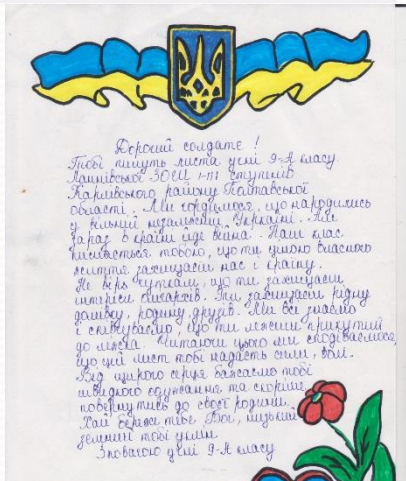 Дорогий солдате!
Тобі пишуть листа учні 9-А класу
Ланнівської ЗОШ І-ІІІ ступенів
Карлівського району Полтавської
області. Ми гордимося, що народились
у вільній незалежній Україні. Але
зараз в країні йде війна. Наш клас
пишається тобою, що ти ціною власного
життя захищаєш нас і країну.
Не вір чуткам, що ти захищаєш
інтереси олігархів. Ти захищаєш рідну
домівку, родину, друзів. Ми все знаємо
і співчуваємо, що ти лежиш прикутий
до ліжка. Читаючи цього ми сподіваємося,
що цей лист тобі надасть сили, волі.
Від щирого серця бажаємо тобі
швидкого одужання та скоріше
повернутись до своєї родини.
Хай береже тебе Бог, низький
земний тобі уклін.
З повагою учні 9-А класу